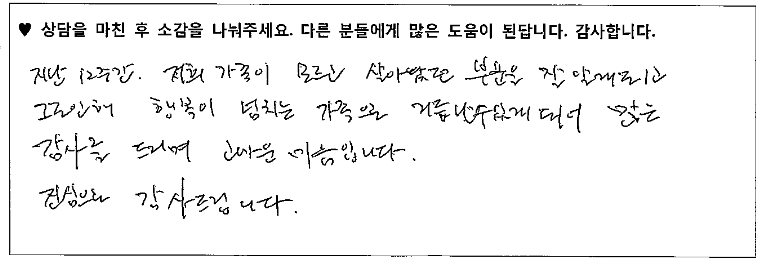 ♥ 상담을 마친 후 소감을 나눠주세요. 다른 분들에게 많은 도움이 된답니다. 감사합니다.
지난 12주간. 저희 가족이 모르고 살아왔던 부분을 잘 알게되고
그로인해 행복이 넘치는 가족으로 거듭날수있게 되어 많은
감사를 드리며 고마운 마음입니다.
진심으로 감사드립니다.